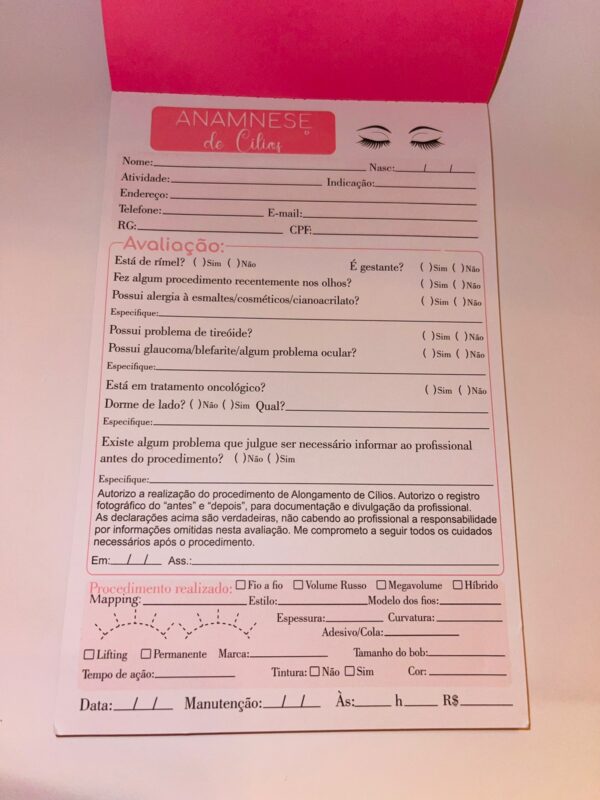 ANAMNESE
de Cílios
Nome:____ Nasc:__/__/__
Atividade:____ Indicação:____
Endereço:____
Telefone:____ E-mail:____
RG:____ CPF:____
Avaliação:
Está de rímel? ( )Sim ( )Não É gestante? ( )Sim ( )Não
Fez algum procedimento recentemente nos olhos? ( )Sim ( )Não
Possui alergia à esmaltes/cosméticos/cianoacrilato? ( )Sim ( )Não
Especifique:____
Possui problema de tireóide? ( )Sim ( )Não
Possui glaucoma/blefarite/algum problema ocular? ( )Sim ( )Não
Especifique:____
Está em tratamento oncológico? ( )Sim ( )Não
Dorme de lado? ( )Não ( )Sim Qual?____
Especifique:____
Existe algum problema que julgue ser necessário informar ao profissional
antes do procedimento? ( )Não ( )Sim
Especifique:____
Autorizo a realização do procedimento de Alongamento de Cílios. Autorizo o registro
fotográfico do “antes” e “depois”, para documentação e divulgação da profissional.
As declarações acima são verdadeiras, não cabendo ao profissional a responsabilidade
por informações omitidas nesta avaliação. Me comprometo a seguir todos os cuidados
necessários após o procedimento.
Em:__/__/__ Ass.:____
Procedimento realizado: ☐ Fio a fio ☐ Volume Russo ☐ Megavolume ☐ Híbrido
Mapping:____ Estilo:____ Modelo dos fios:____
Espessura:____ Curvatura:____
Adesivo/Cola:____
☐ Lifting ☐ Permanente Marca:____ Tamanho do bob:____
Tempo de ação:____ Tintura: ☐ Não ☐ Sim Cor:____
Data:__/__/__ Manutenção:__/__/__ Às:____ h____ R$____